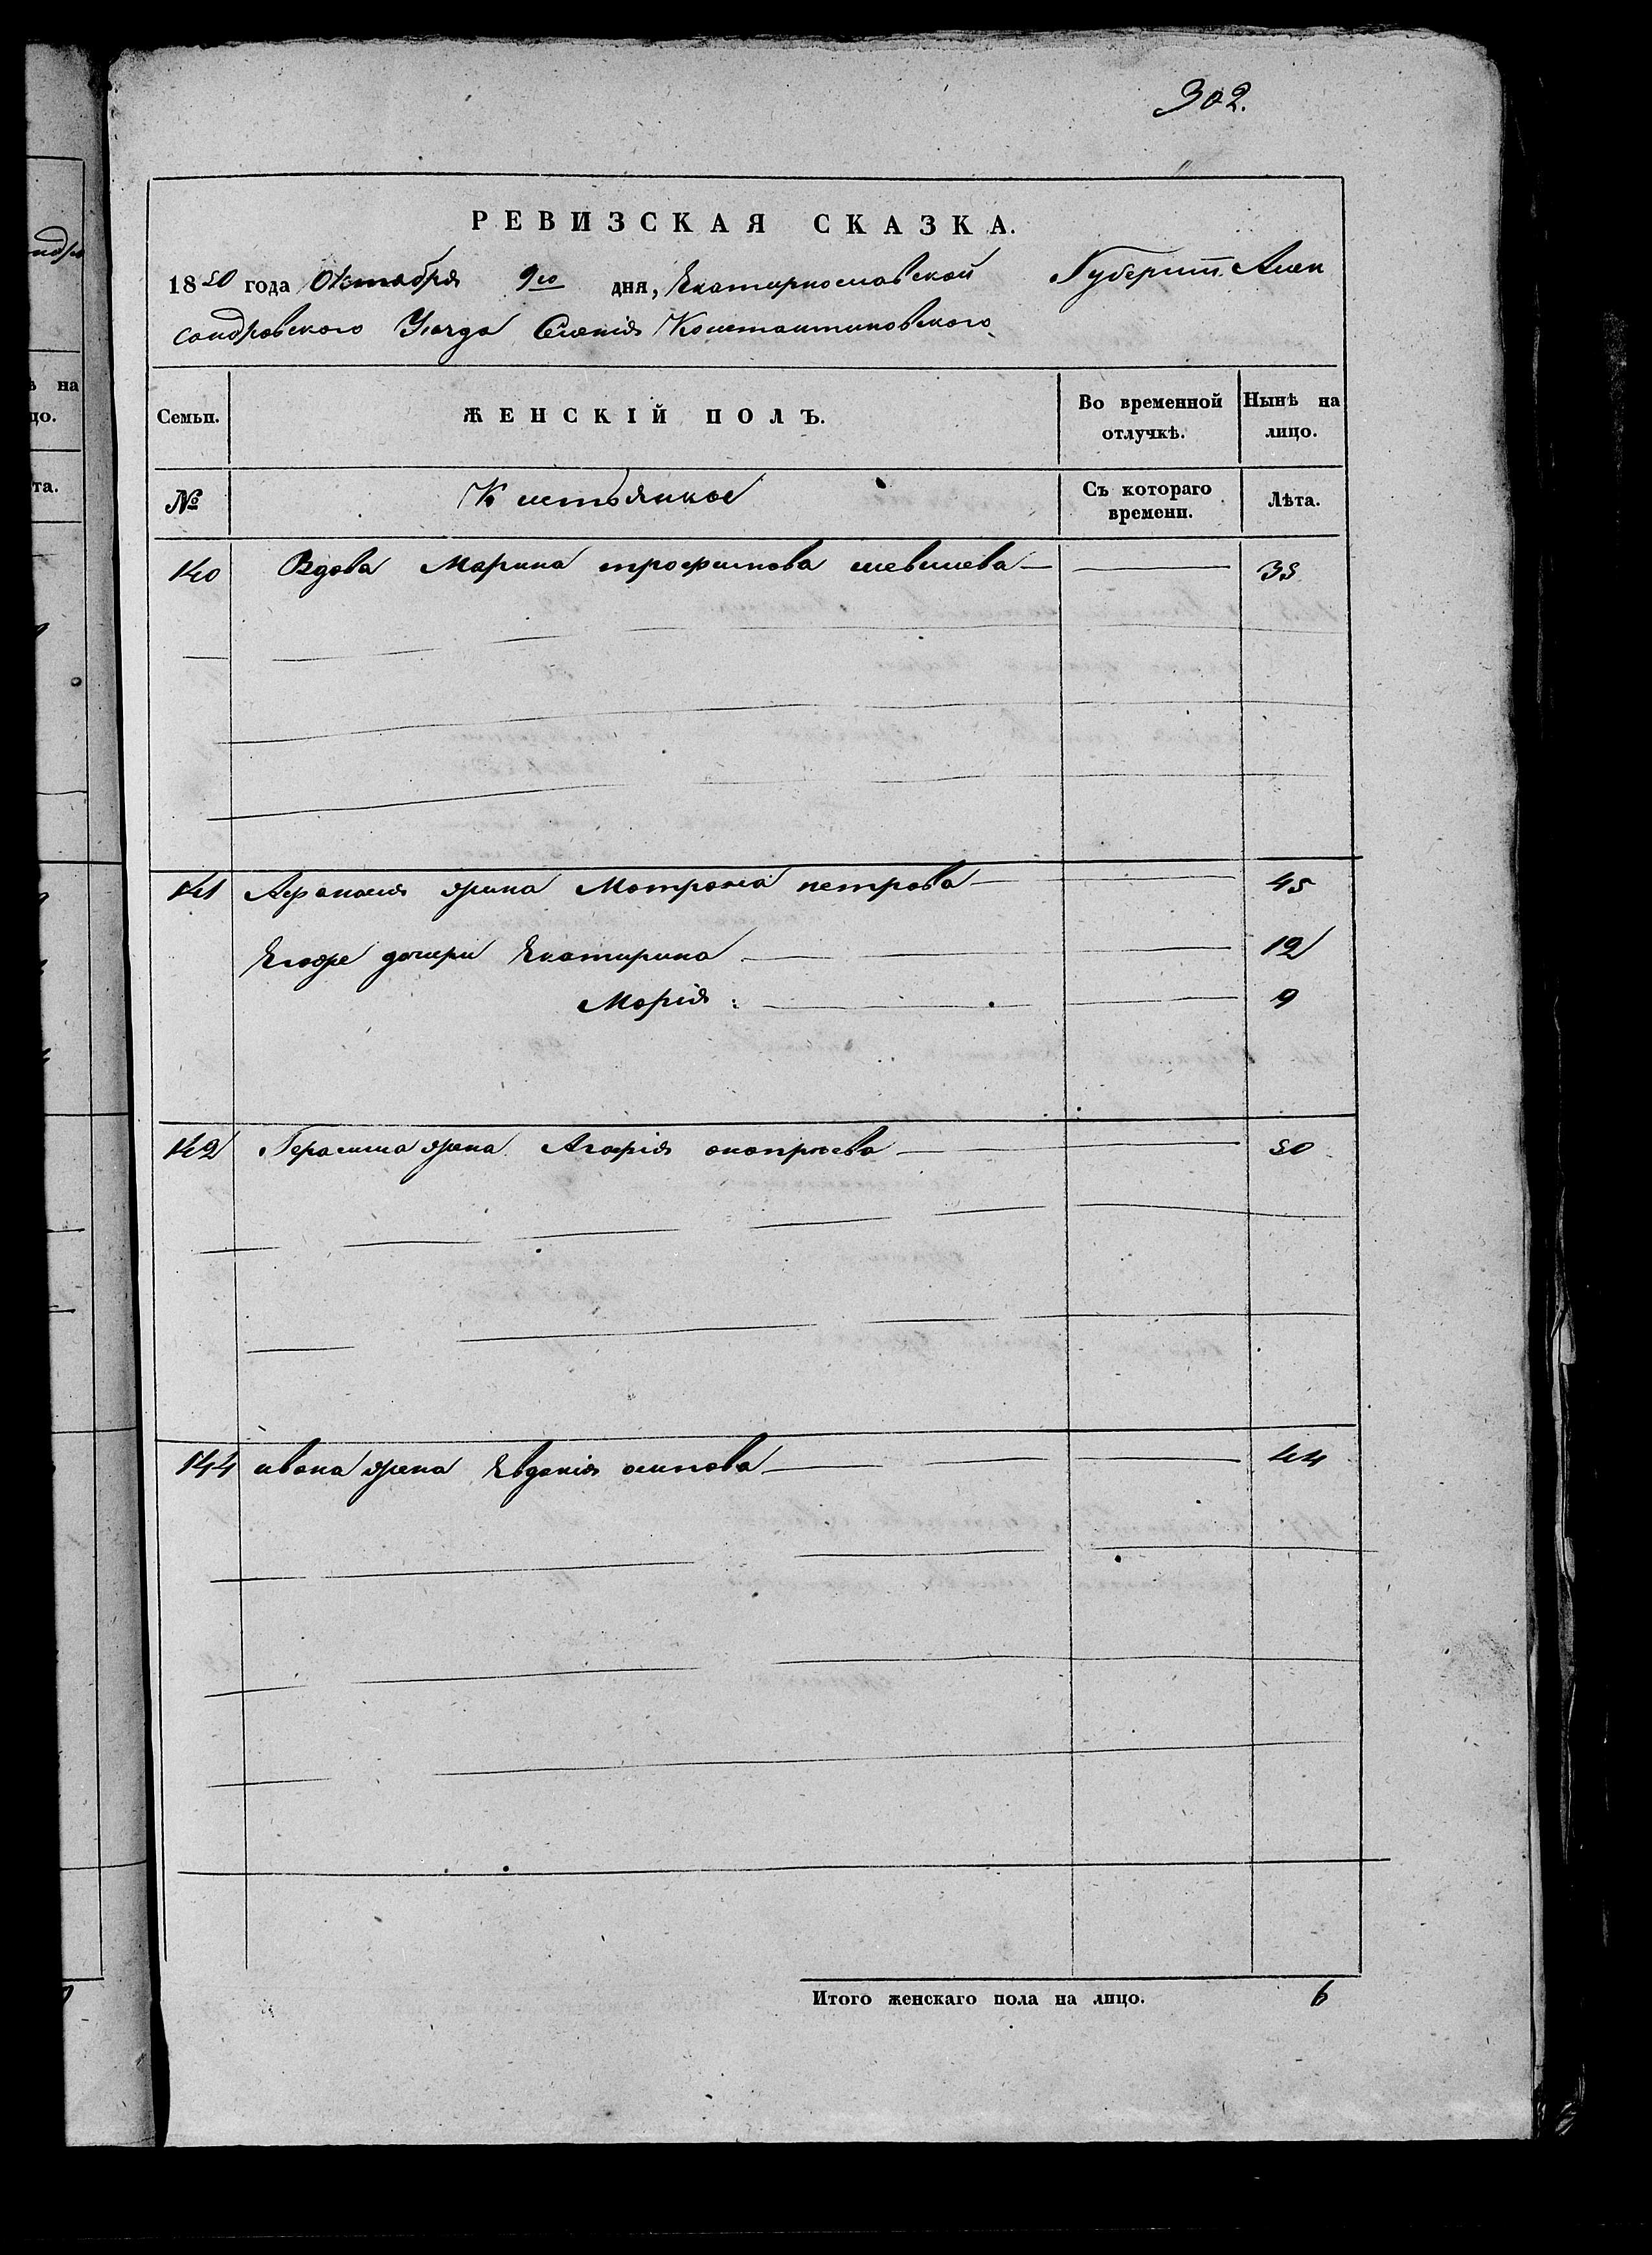 302.
РЕВИЗСКАЯ СКАЗКА.
1850 года Октября 9го дня, Екатирнославской Губернии Алек
сандровского Уезда Селения Константиновского
Семьи. ЖЕНСКІЙ ПОЛЪ. Во временной отлучкѣ. Нынѣ на лицо.
№ Съ котораго времени. Лѣта.
140 Вдова Марина трофимова 35
141 Афанасия жина Мотрона петрова 45
Егоже дочери Екатирина 12
Марія 9
142 Герасима жена Агафія 50
144 ивана жена Евдокия осипова 44
Итого женскаго пола на лицо. 6
ѣ на
цо.
та.